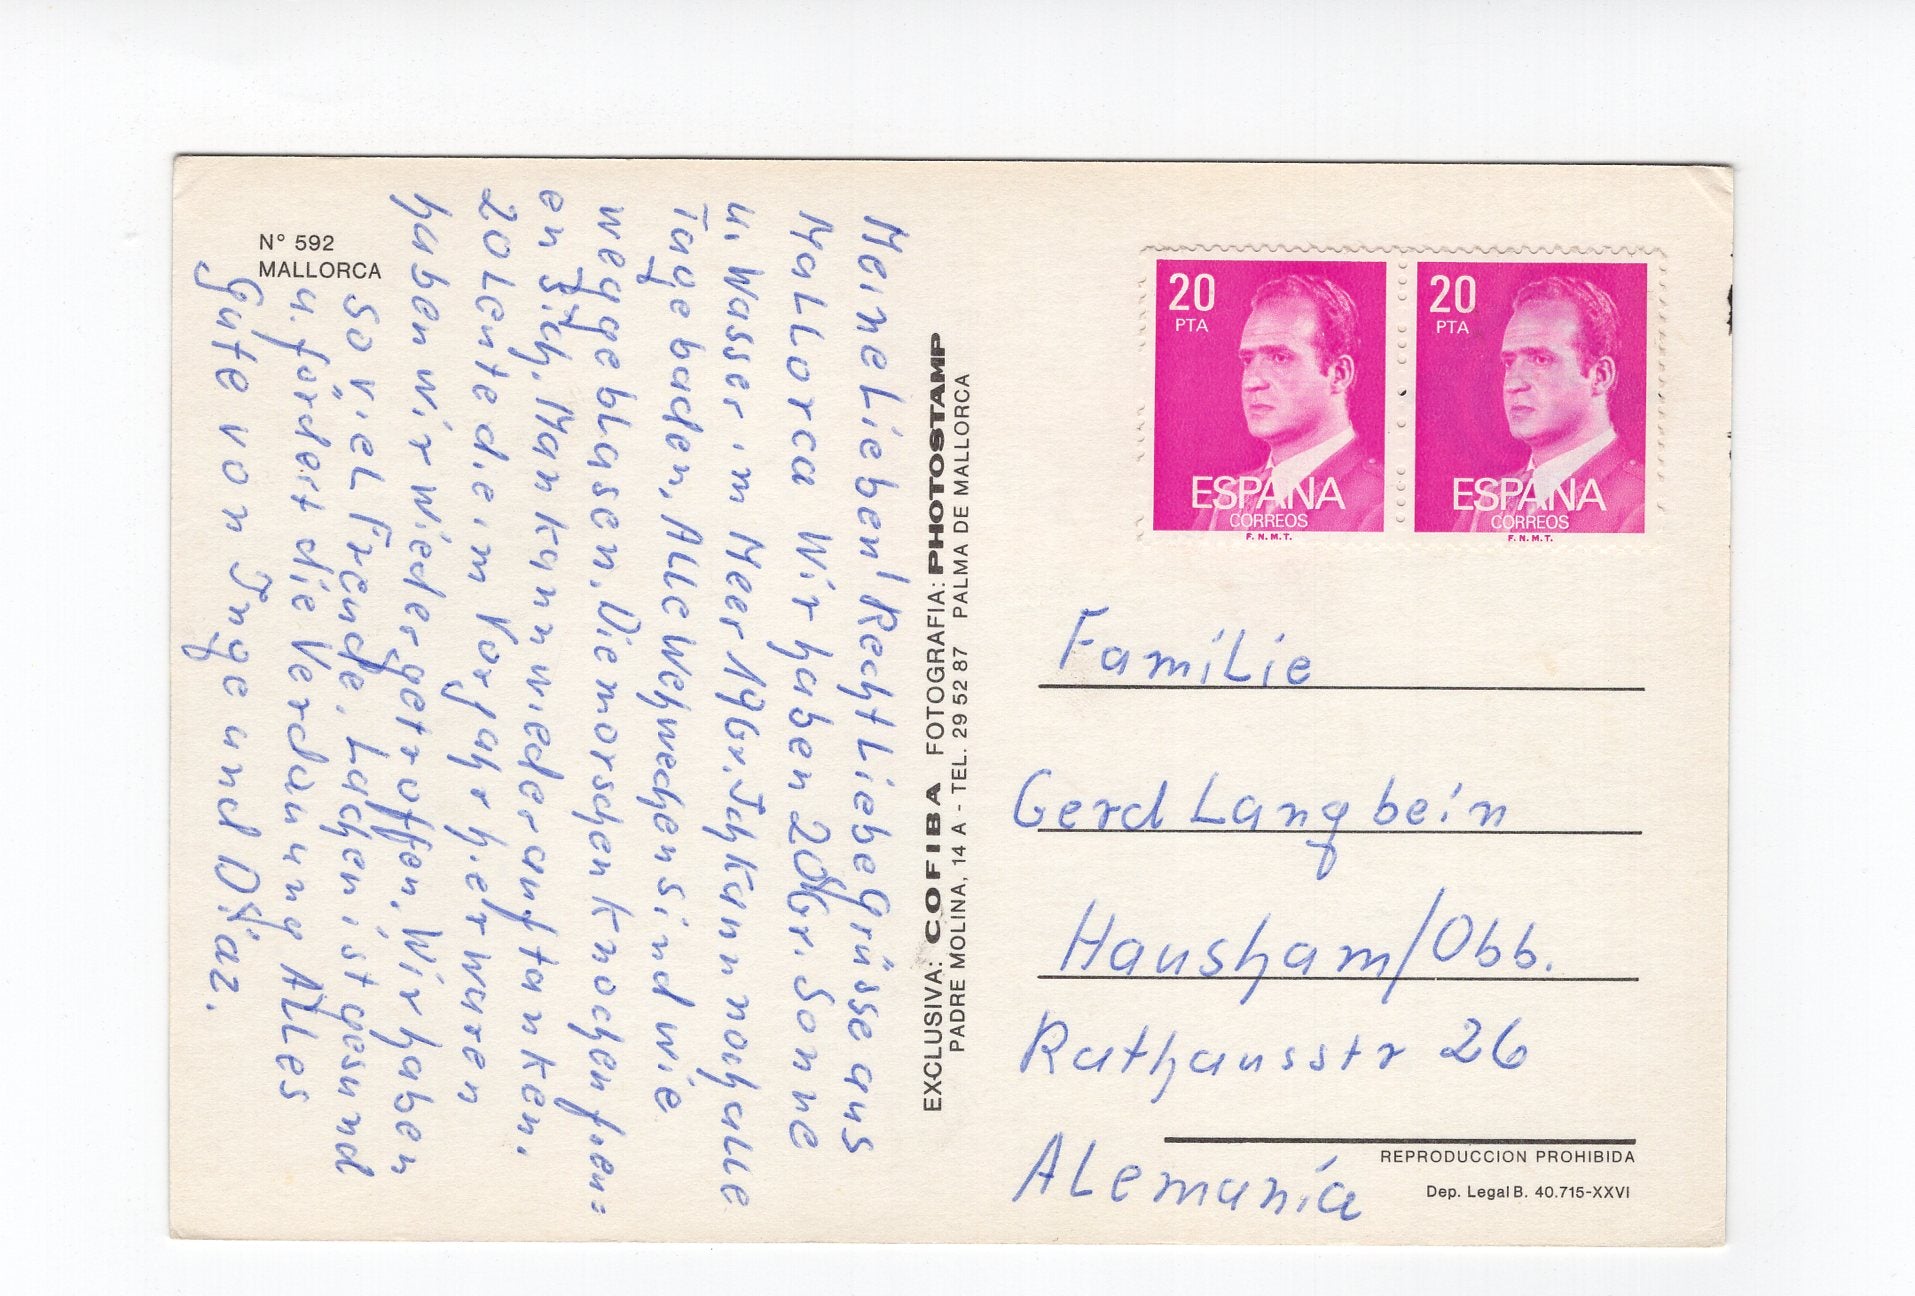 N° 592
MALLORCA
Meine Lieben! Recht Liebe Grüsse aus
Mallorca Wir haben 20 Gr. Sonne
u. Wasser im Meer 19 Gr. Ich kann noch alle
Tage baden, Alle Wehwechen sind wie
weggeblasen. Die morschen Knochen freu=
en sich. Man kann wieder auftanken.
20 Leute die im Vorjahr hier waren
haben wir wieder getroffen. Wir haben
so viel Freude. Lachen ist gesund
u. fördert die Verdauung Alles
Gute von Inge und Diaz.
EXCLUSIVA: COFIBA FOTOGRAFIA: PHOTOSTAMP
PADRE MOLINA, 14 A - TEL. 29 52 87 PALMA DE MALLORCA
20 20
PTA PTA
ESPAÑA ESPAÑA
CORREOS CORREOS
F.N.M.T. F.N.M.T.
Familie
Gerd Langbein
Hausham/Obb.
Rathausstr 26
Alemanía
REPRODUCCION PROHIBIDA
Dep. Legal B. 40.715-XXVI